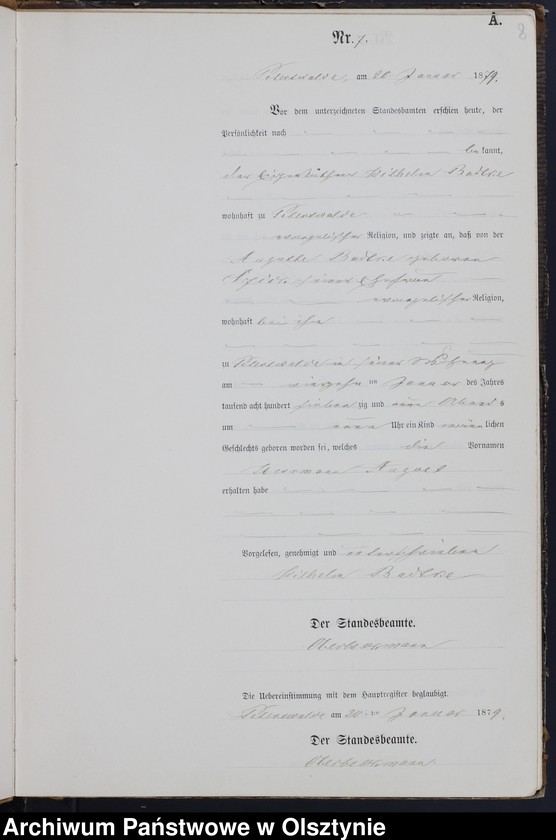 A.
8
Nr. 7.
am 20 Januar 1879.
Vor dem unterzeichneten Standesbamten erschien heute, der
Persönlichkeit nach
bekannt,
der Eigenkäthner Wilhelm
wohnhaft zu
evangelischer Religion, und zeigte an, daß von der
geborenen
seiner Ehefrau
evangelischer Religion,
wohnhaft bei ihm
zu in seiner Wohnung
am vierzehn ten Januar des Jahres
tausend acht hundert siebenzig und neun Abends
um neun Uhr ein Kind männlichen
Geschlechts geboren worden sei, welches die Vornamen
Hermann August
erhalten habe
Vorgelesen, genehmigt und unterschrieben
Wilhelm
Der Standesbeamte.
Die Uebereinstimmung mit dem Hauptregister beglaubigt.
am 20 ten Januar 1879.
Der Standesbeamte.
Archiwum Państwowe w Olsztynie